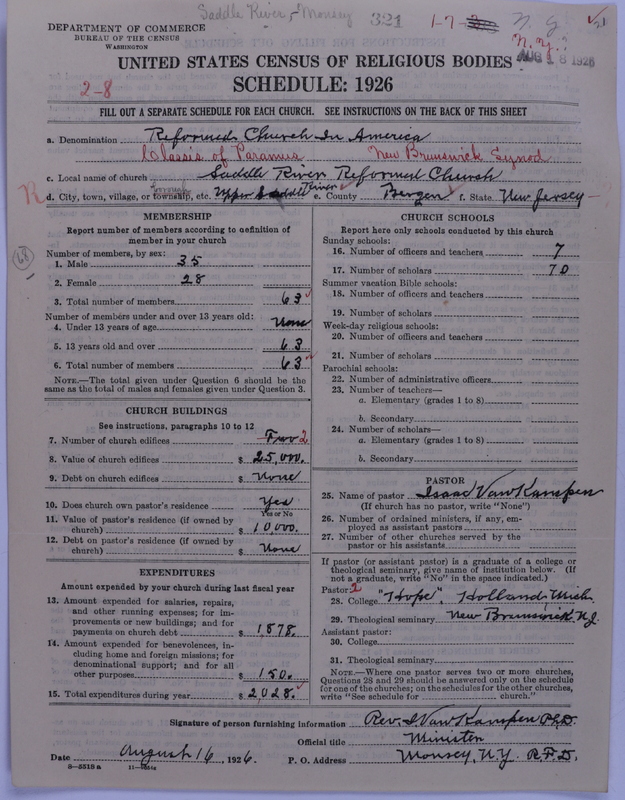 Saddle River, - Monsey 321 1-7 N.J.
N.Y.?
DEPARTMENT OF COMMERCE
BUREAU OF THE CENSUS
WASHINGTON
AUG 18 1926
UNITED STATES CENSUS OF RELIGIOUS BODIES
SCHEDULE: 1926
2-8
FILL OUT A SEPARATE SCHEDULE FOR EACH CHURCH. SEE INSTRUCTIONS ON THE BACK OF THIS SHEET
a. Denomination Reformed Church In America
Classis of Paramus New Brunswick Synod
c. Local name of church Saddle River Reformed Church
R d. City, town, village, or township, etc. Upper Saddle River e. County Bergen f. State New Jersey
MEMBERSHIP
Report number of members according to definition of
member in your church
Number of members, by sex:
1. Male 35
2. Female 28
3. Total number of members 63
Number of members under and over 13 years old:
4. Under 13 years of age None
5. 13 years old and over 63
6. Total number of members 63
NOTE.—The total given under Question 6 should be the
same as the total of males and females given under Question 3.
68
CHURCH BUILDINGS
See instructions, paragraphs 10 to 12
7. Number of church edifices Two 2
8. Value of church edifices $ 25,000.
9. Debt on church edifices $ None
10. Does church own pastor's residence Yes
Yes or No
11. Value of pastor's residence (if owned by
church) $ 10000.
12. Debt on pastor's residence (if owned by
church) $ None
EXPENDITURES
Amount expended by your church during last fiscal year
13. Amount expended for salaries, repairs,
and other running expenses; for im-
provements or new buildings; and for
payments on church debt $ 1878.
14. Amount expended for benevolences, in-
cluding home and foreign missions; for
denominational support; and for all
other purposes $ 150.
15. Total expenditures during year $ 2028.
CHURCH SCHOOLS
Report here only schools conducted by this church
Sunday schools:
16. Number of officers and teachers 7
17. Number of scholars 70
Summer vacation Bible schools:
18. Number of officers and teachers
19. Number of scholars
Week-day religious schools:
20. Number of officers and teachers
21. Number of scholars
Parochial schools:
22. Number of administrative officers
23. Number of teachers—
a. Elementary (grades 1 to 8)
b. Secondary
24. Number of scholars—
a. Elementary (grades 1 to 8)
b. Secondary
PASTOR
25. Name of pastor Isaac Van Kampen
(If church has no pastor, write "None")
26. Number of ordained ministers, if any, em-
ployed as assistant pastors
27. Number of other churches served by the
pastor or his assistants
If pastor (or assistant pastor) is a graduate of a college or
theological seminary, give name of institution below. (If
not a graduate, write "No" in the space indicated.)
Pastor: 2
28. College "Hope", Holland Mich.
29. Theological seminary New Brunswick N.J.
Assistant pastor:
30. College
31. Theological seminary
NOTE.—Where one pastor serves two or more churches,
Questions 28 and 29 should be answered only on the schedule
for one of the churches; on the schedules for the other churches,
write "See schedule for church."
Signature of person furnishing information Rev. I Van Kampen Ph.D.
Official title Minister
Date August 16, 1926. P. O. Address Monsey, N.Y. R.F.D.
8-5515 a